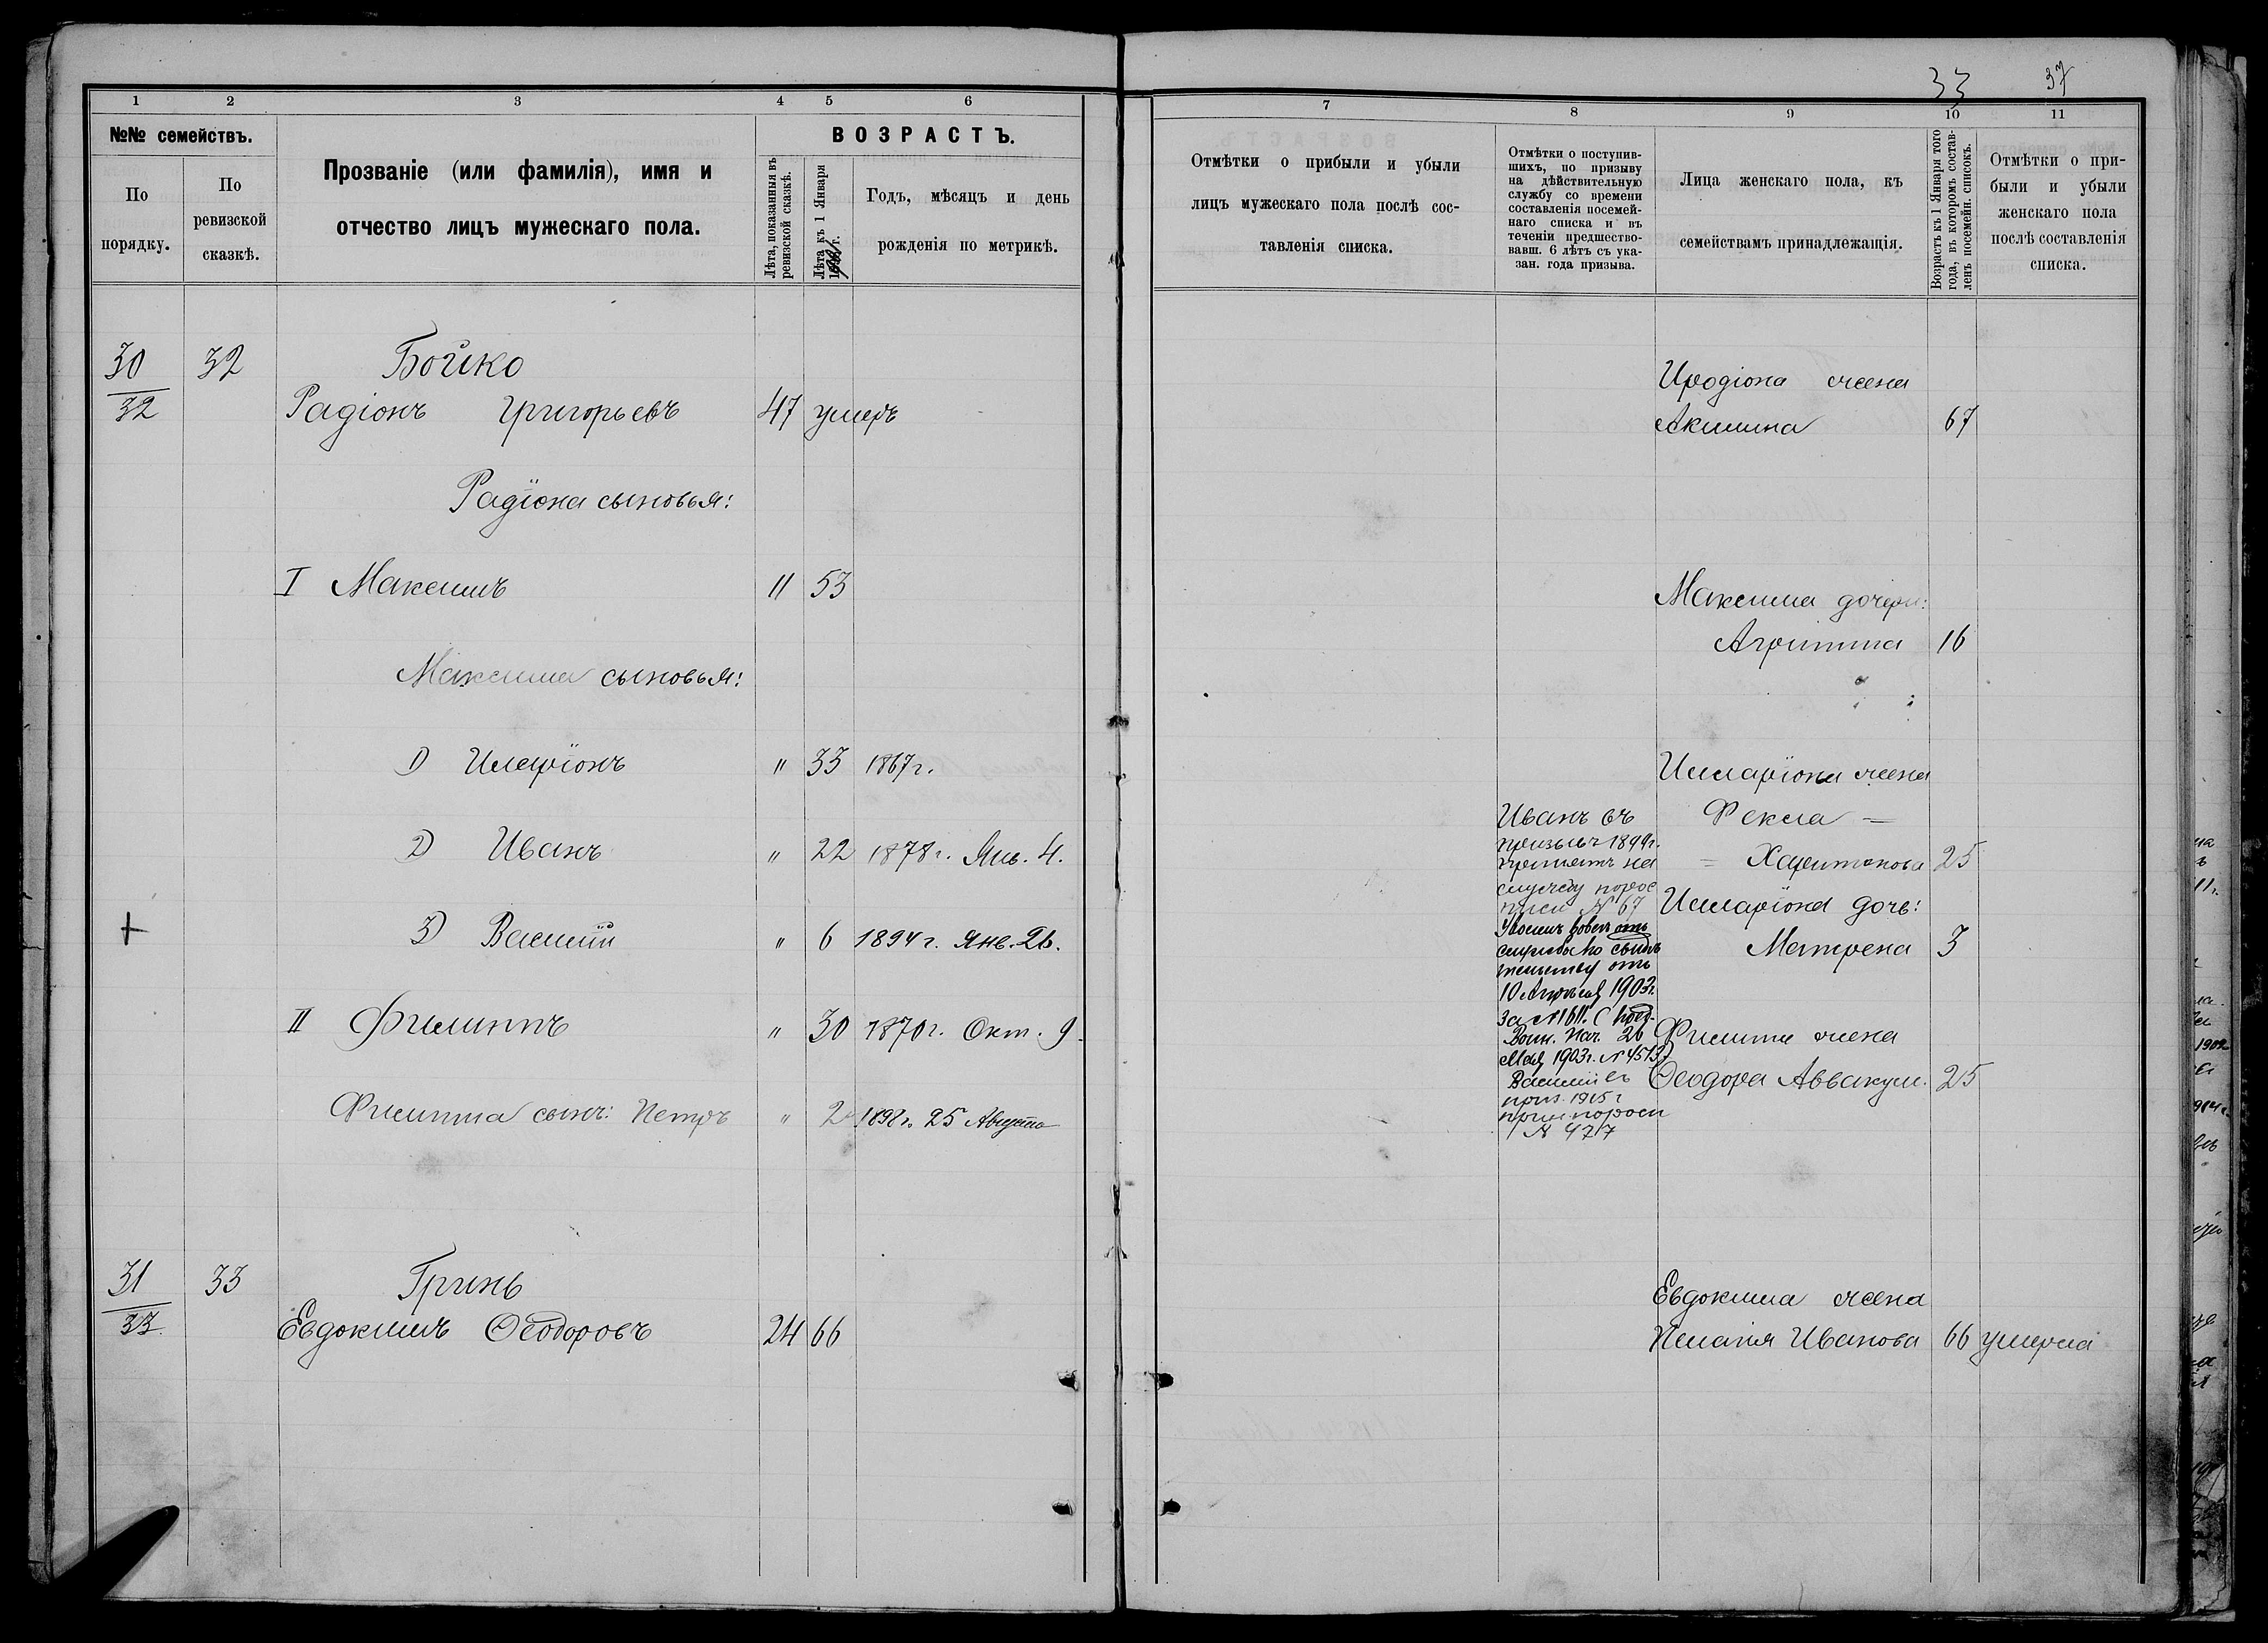 33 37
1 2 3 4 5 6
№№ семействъ.
По порядку.
По ревизской сказкѣ.
Прозваніе (или фамилія), имя и
отчество лицъ мужескаго пола.
ВОЗРАСТЪ.
Лѣта, показанныя въ
ревизской сказкѣ.
Лѣта къ 1 Января
Годъ, мѣсяцъ и день
рожденія по метрикѣ.
30 32 Бойко
32 Радіонъ Григорьевъ 47 умеръ
Радіона сыновья:
I Максимъ " 53
Максима сыновья:
1) Иларіонъ " 33 1867 г.
2) Иванъ " 22 1878 г. Янв. 4.
+ 3) Василій " 6 1894 г. Янв. 26.
II Филиппъ " 30 1870 г. Окт. 9.
Филиппа сынъ: Петръ " 2 1898 г. 25 Августа
31 33 Гринь
33. Евдокимъ Ѳеодоровъ 24 66
7 8 9 10 11
Отмѣтки о прибыли и убыли
лицъ мужескаго пола послѣ сос-
тавленія списка.
Отмѣтки о поступив-
шихъ, по призыву
на дѣйствительную
службу со времени
составленія посемей-
наго списка и въ
теченіи предшество-
вавш. 6 лѣтъ съ ука-
зан. года призыва.
Лица женскаго пола, къ
семействамъ принадлежащія.
Возрастъ къ 1 Января того
года, въ которомъ состав-
ленъ посемейн. списокъ.
Отмѣтки о при-
были и убыли
женскаго пола
послѣ составленія
списка.
Иродіона жена
Акилина 67
Максима дочери:
Агрипина 16
Илларіона жена
Фекла =
= Харитонова 25
Илларіона дочь:
Матрена 3
Филиппа жена
Ѳеодора Аввакум. 25
Иванъ въ
призывъ 1899 г.
принятъ на
службу по рос
писи № 67
Уволенъ вовсе отъ
службы по свидѣ
тельству отъ
10 Апрѣля 1903 г.
за № 1611.
Воин. Нач. 26
Мая 1903 г. № 4513)
Василій въ
приз. 1915 г
прин по роси
№ 477
Евдокима жена
Пелагія Иванова 66 умерла